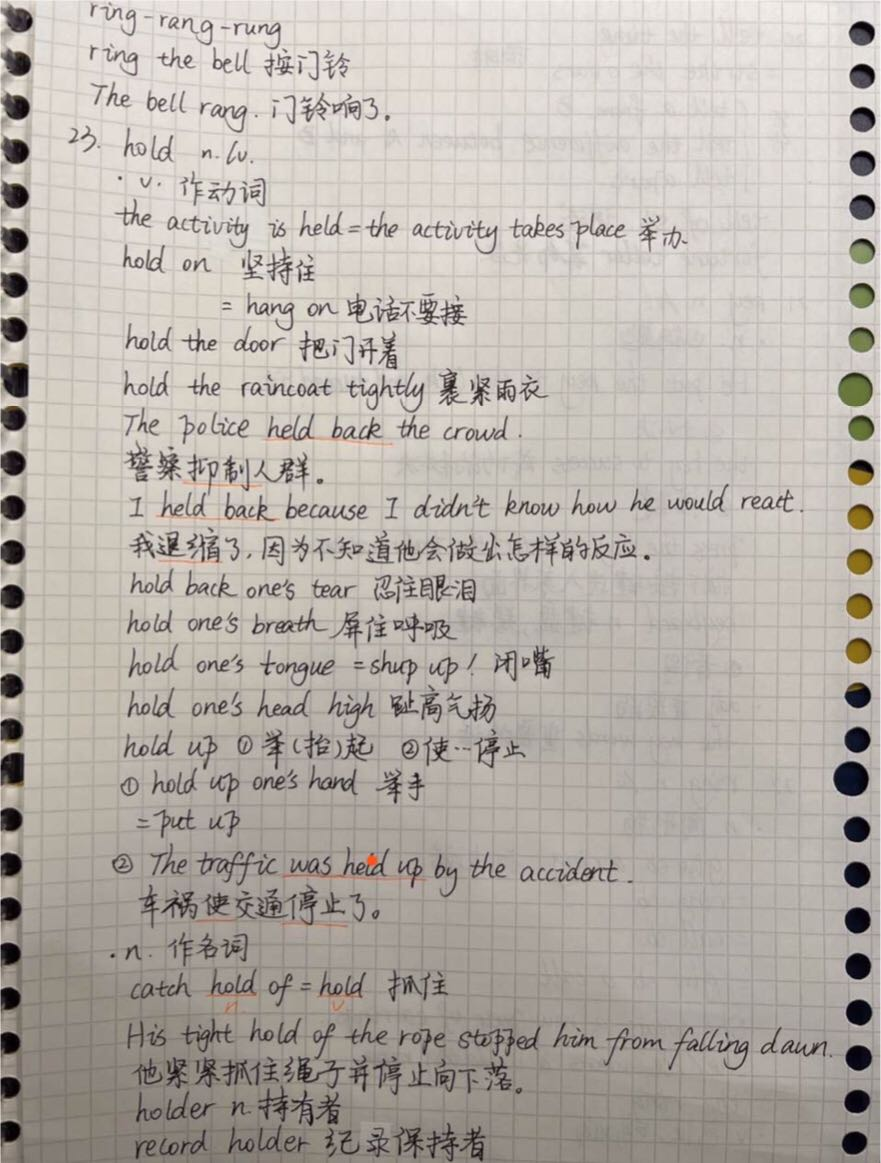 ring-rang-rung
ring the bell 按门铃
The bell rang. 门铃响了。
23. hold n./v.
· v. 作动词
the activity is held = the activity takes place 举办.
hold on 坚持住
= hang on 电话不要接
hold the door 把门开着
hold the raincoat tightly 裹紧雨衣
The police held back the crowd.
警察抑制人群。
I held back because I didn't know how he would react.
我退缩了,因为不知道他会做出怎样的反应。
hold back one's tear 忍住眼泪
hold one's breath 屏住呼吸
hold one's tongue = shup up! 闭嘴
hold one's head high 趾高气扬
hold up ①举(抬)起 ②使…停止
① hold up one's hand 举手
= put up
② The traffic was held up by the accident.
车祸使交通停止了。
· n. 作名词
catch hold of = hold 抓住
n. v
His tight hold of the rope stopped him from falling dawn.
他紧紧抓住绳子并停止向下落。
holder n. 持有者
record holder 纪录保持者